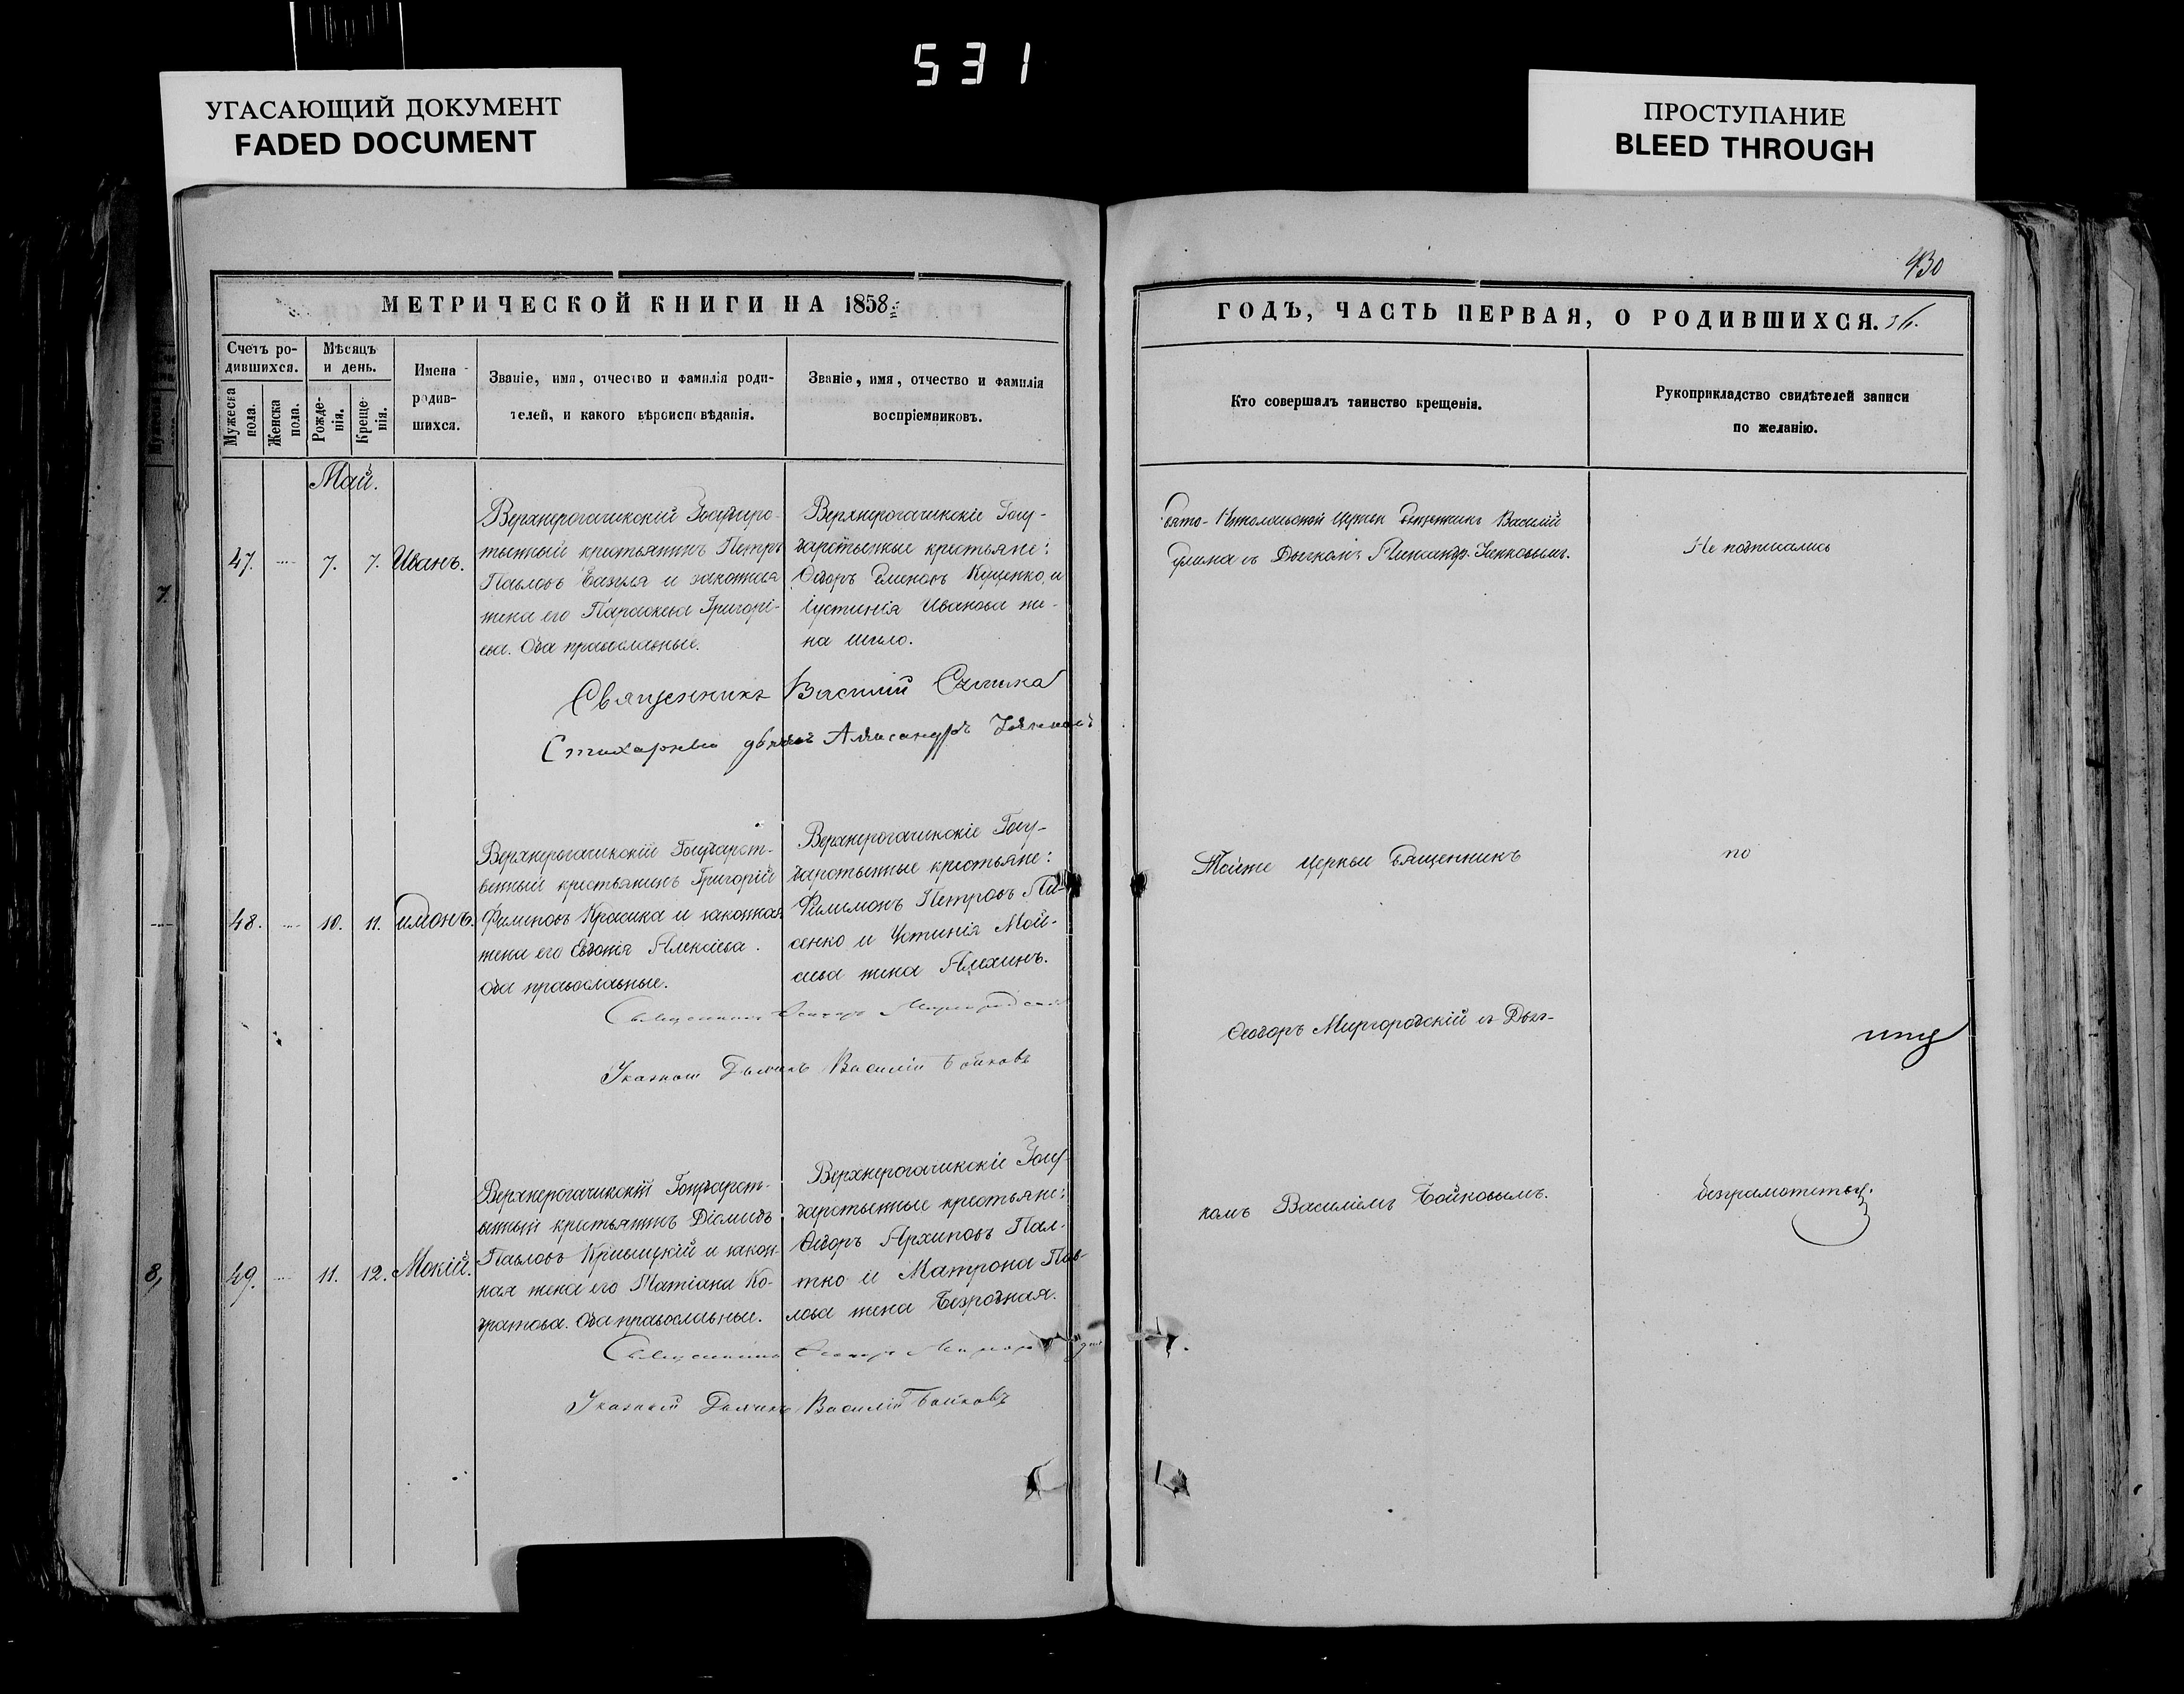 531
УГАСАЮЩИЙ ДОКУМЕНТ
FADED DOCUMENT
ПРОСТУПАНИЕ
BLEED THROUGH
430
МЕТРИЧЕСКОЙ КНИГИ НА 1858
ГОДЪ, ЧАСТЬ ПЕРВАЯ, О РОДИВШИХСЯ.
Счетъ ро-
дившихся.
Мужеска пола.
Женска пола.
Мѣсяцъ
и день.
Рожде-
нія.
Креще-
нія.
Имена
родив-
шихся.
Званіе, имя, отчество и фамилія роди-
телей, и какого вѣроисповѣданія.
Званіе, имя, отчество и фамилія
воспріемниковъ.
Кто совершалъ таинство крещенія.
Рукоприкладство свидѣтелей записи
по желанію.
Май.
47. 7. 7. Иванъ.
Верхнерогачикскій Государс-
твенный крестьянинъ Петръ
Павловъ и законная
жена его Параскева Григорі-
ева. Оба православные.
Верхнерогачикскіе Госу-
дарственные крестьяне:
Ѳедоръ Семеновъ Куценко и
Іустинія Иванова же-
на Шило.
Свято-Николаевской Церкви Священникъ Василій
съ Дьячкомъ Александр.
Не подписались
Священникъ Василій
Стихарный дьячекъ Александръ
48. 10. 11. Симонъ.
Верхнерогачикскій Государст-
венный крестьянинъ Григорій
Филиповъ Красика и законная
жена его Евдокія Алексѣева.
Оба православные.
Верхнерогачикскіе Госу-
дарственные крестьяне:
Филимонъ Петровъ Ли-
сенко и Устинія Мой-
сеева жена Алехинъ.
Тойже Церкви Священникъ
по
Священникъ Ѳеодоръ Миргородскій
Ѳеодоръ Миргородскій съ Дьяч-
Указный Дьячекъ Василій Бойковъ
49. 11. 12. Мокій.
Верхнерогачикскій Государст-
венный крестьянинъ Діомидъ
Павловъ Кривицкій и закон-
ная жена его Татіана Ко-
дратова. Оба православные.
Верхнерогачикскіе Госу-
дарственные крестьяне:
Ѳедоръ Архиповъ Пал-
тко и Матрона Пав-
лова жена Безродная.
комъ Василіемъ Бойковымъ.
безграмотству.
Священникъ Ѳеодоръ
Указный Дьячекъ Василій Бойковъ
7.
8,